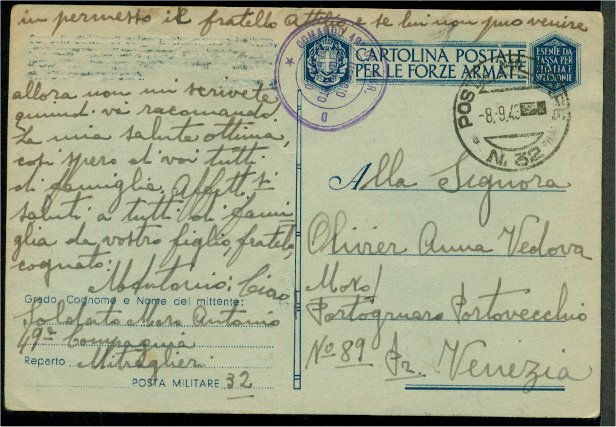 in permesso il fratello Attilio e se lui non può venire
allora non mi scrivete
quindi vi racomando.
La mia salute ottima,
così spero di voi tutti
di famiglia. Affett. si
saluti a tutti di fami-
glia da vostro figlio, fratello,
cognato:
Montorio: Ciao
Grado, Cognome e Nome del mittente:
Soldato Moro Antonio
49a Compagnia
Reparto Mitraglieri
POSTA MILITARE 32
COMANDO
CARTOLINA POSTALE
PER LE FORZE ARMATE
ESENTE DA
TASSA PER
L'ITALIA E
POS
-8.9.43
N. 32
Alla Signora
Olivier Anna Vedova
Moro/
Portogruaro Portovecchio
No 89 Pr. Venezia